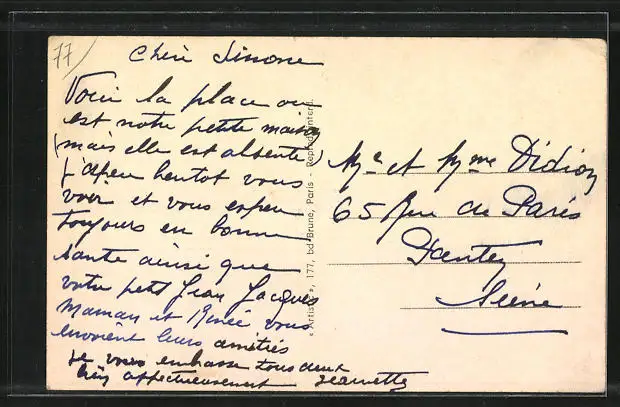 77
Chère Simone
Voici la place ou
est notre petite maison
(mais elle est absente)
j'espere bientot vous
voir et vous espere
toujours en bonne
sante ainsi que
votre petit Jean Jacques
Maman et Renée vous
envoient leurs amitiés
je vous embrasse tous deux
bien affectueusement Jeannette
« Artis », 177, bd. Brune, Paris - Repr.
Mr et Mme Didion
65 Rue de Paris
Pantin
Seine